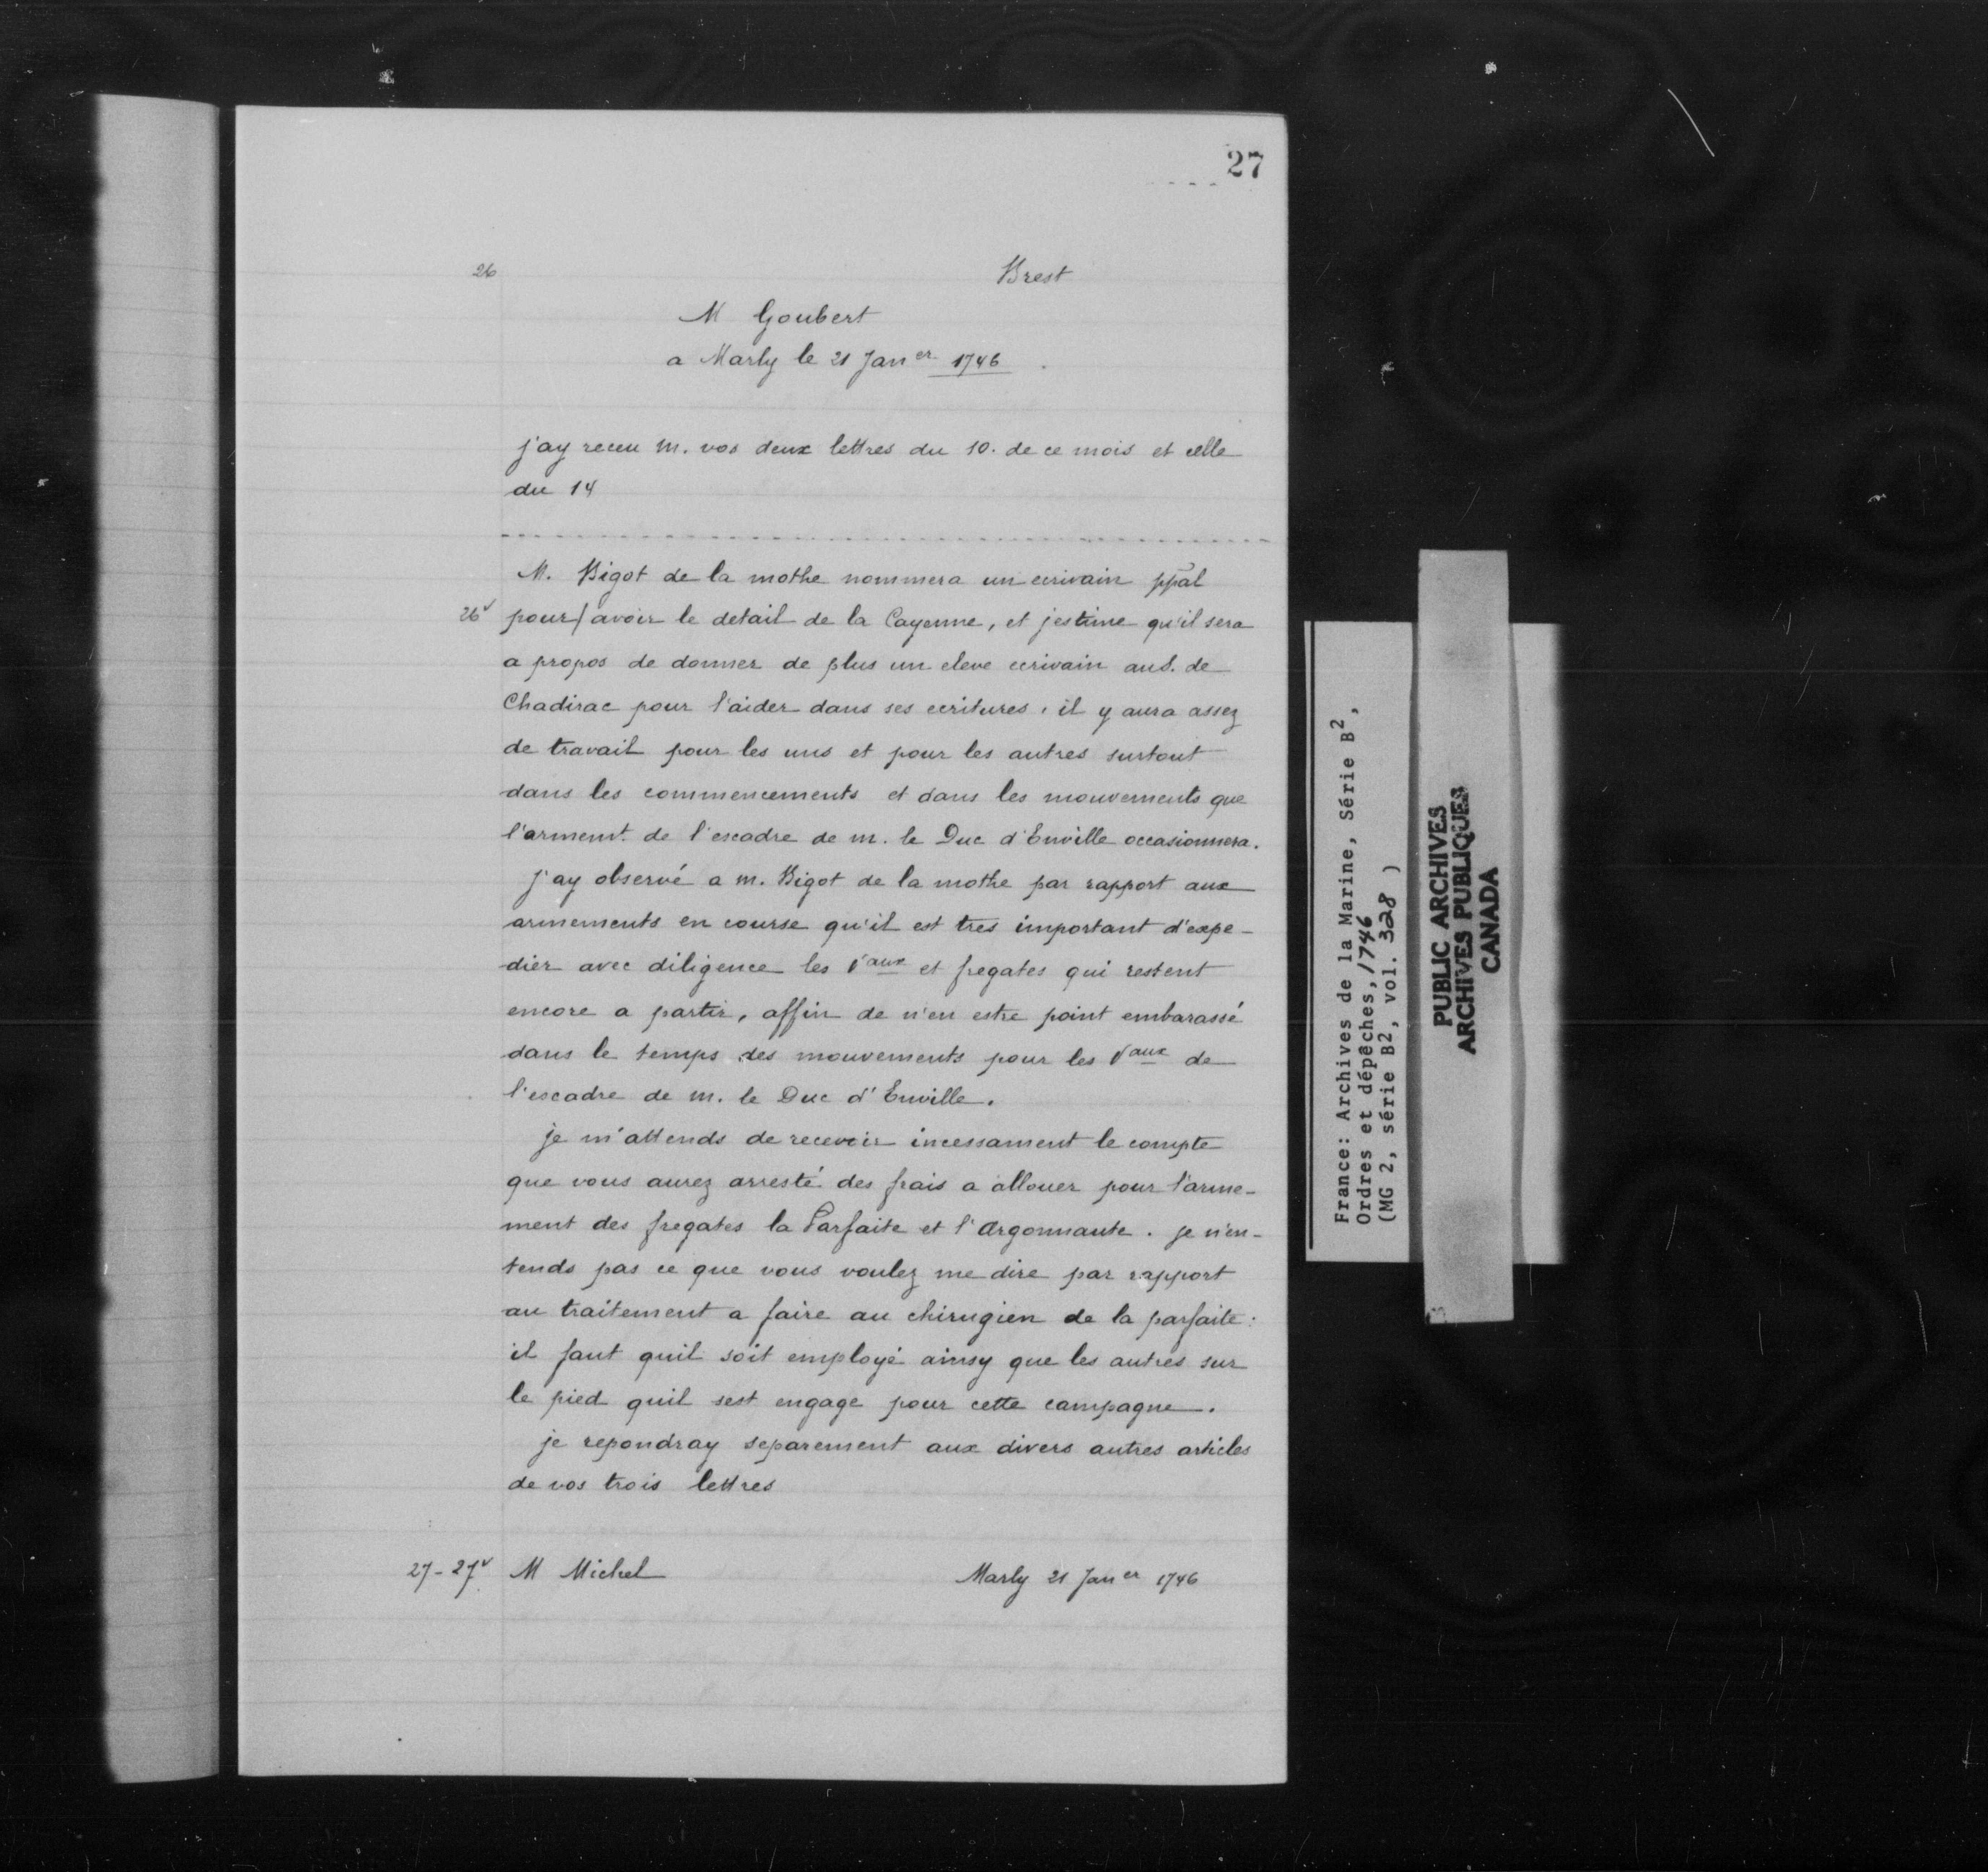 27
26 Brest
M Goubert
a Marly le 21 Jan er 1746.
j'ay receu m. vos deux lettres du 10. de ce mois et celle
du 14
M. Bigot de la mothe nommera un ecrivain ppāl
26v pour/avoir le detail de la Cayenne, et jestime qu'il sera
a propos de donner de plus un eleve ecrivain au s. de
Chadirac pour l'aider dans ses ecritures, il y aura assez
de travail pour les uns et pour les autres surtout
dans les commencements et dans les mouvements que
l'armemt. de l'escadre de m. le Duc d'Enville occasionnera.
j'ay observé a m. Bigot de la mothe par rapport aux
armements en course qu'il est tres important d'expe-
dier avec diligence les Vaux et fregates qui restent
encore a partir, affin de n'en estre point embarassé
dans le temps des mouvements pour les Vaux de
l'escadre de m. le Duc d'Enville.
je m'attends de recevoir incessament le compte
que vous aurez arresté des frais a allouer pour l'arme-
ment des fregates la Parfaite et l'Argonnaute. je n'en-
tends pas ce que vous voulez me dire par rapport
au traitement a faire au chirugien de la parfaite:
il faut quil soit employé ainsy que les autres sur
le pied quil sest engage pour cette campagne.
je repondray separement aux divers autres articles
de vos trois lettres
27-27v M Michel Marly 21 Jan er 1746
France: Archives de la Marine, Série B2,
Ordres et dépêches, 1746
(MG 2, série B2, vol. 328 )
PUBLIC ARCHIVES
ARCHIVES PUBLIQUES
CANADA